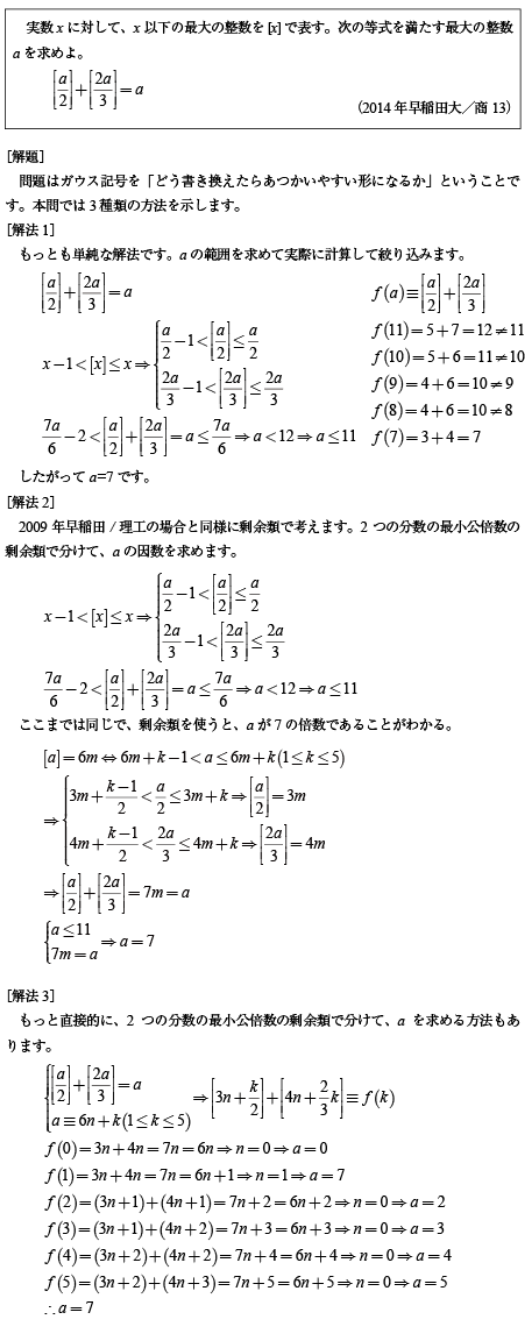 実数 x に対して、x 以下の最大の整数を [x] で表す。次の等式を満たす最大の整数
a を求めよ。
[a/2]+[2a/3]=a
（2014 年早稲田大／商 13）
［解題］
問題はガウス記号を「どう書き換えたらあつかいやすい形になるか」ということで
す。本問では 3 種類の方法を示します。
［解法 1］
もっとも単純な解法です。a の範囲を求めて実際に計算して絞り込みます。
[a/2]+[2a/3]=a
x−1<[x]≤x⇒{a/2−1<[a/2]≤a/2
2a/3−1<[2a/3]≤2a/3
7a/6−2<[a/2]+[2a/3]=a≤7a/6⇒a<12⇒a≤11
f(a)≡[a/2]+[2a/3]
f(11)=5+7=12≠11
f(10)=5+6=11≠10
f(9)=4+6=10≠9
f(8)=4+6=10≠8
f(7)=3+4=7
したがって a=7 です。
［解法 2］
2009 年早稲田 / 理工の場合と同様に剰余類で考えます。2 つの分数の最小公倍数の
剰余類で分けて、a の因数を求めます。
x−1<[x]≤x⇒{a/2−1<[a/2]≤a/2
2a/3−1<[2a/3]≤2a/3
7a/6−2<[a/2]+[2a/3]=a≤7a/6⇒a<12⇒a≤11
ここまでは同じで、剰余類を使うと、a が 7 の倍数であることがわかる。
[a]=6m⇔6m+k−1<a≤6m+k(1≤k≤5)
⇒{3m+(k−1)/2<a/2≤3m+k⇒[a/2]=3m
4m+(k−1)/2<2a/3≤4m+k⇒[2a/3]=4m
⇒[a/2]+[2a/3]=7m=a
{a≤11
7m=a⇒a=7
［解法 3］
もっと直接的に、2 つの分数の最小公倍数の剰余類で分けて、a を求める方法もあ
ります。
{[a/2]+[2a/3]=a
a≡6n+k(1≤k≤5)⇒[3n+k/2]+[4n+2/3k]≡f(k)
f(0)=3n+4n=7n=6n⇒n=0⇒a=0
f(1)=3n+4n=7n=6n+1⇒n=1⇒a=7
f(2)=(3n+1)+(4n+1)=7n+2=6n+2⇒n=0⇒a=2
f(3)=(3n+1)+(4n+2)=7n+3=6n+3⇒n=0⇒a=3
f(4)=(3n+2)+(4n+2)=7n+4=6n+4⇒n=0⇒a=4
f(5)=(3n+2)+(4n+3)=7n+5=6n+5⇒n=0⇒a=5
∴a=7